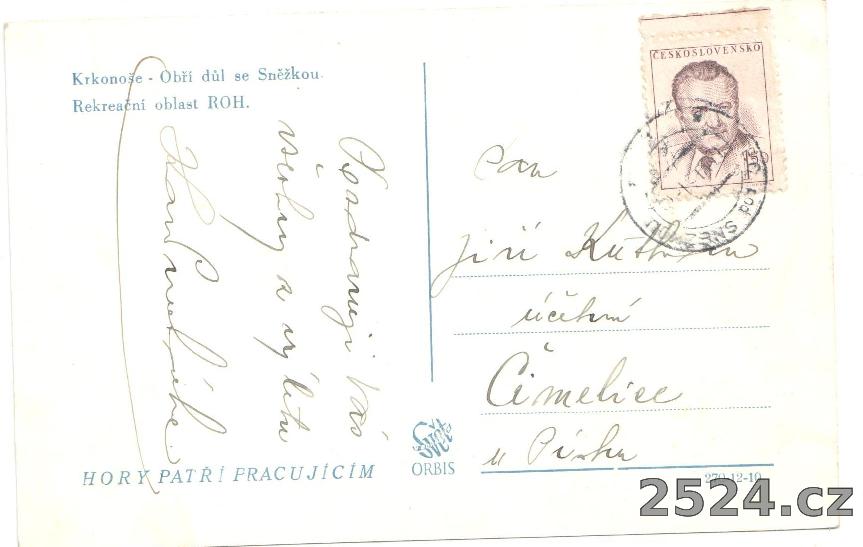 Krkonoše - Obří důl se Sněžkou.
Rekreační oblast ROH.
Pozdravuji Vás
všechny z výletu
ČESKOSLOVENSKO
pod SNĚŽKOU
Pan
Jiří
účetní
Čimelice
u Písku
HORY PATŘÍ PRACUJÍCÍM
Svět
ORBIS
270-12-10
2524.cz